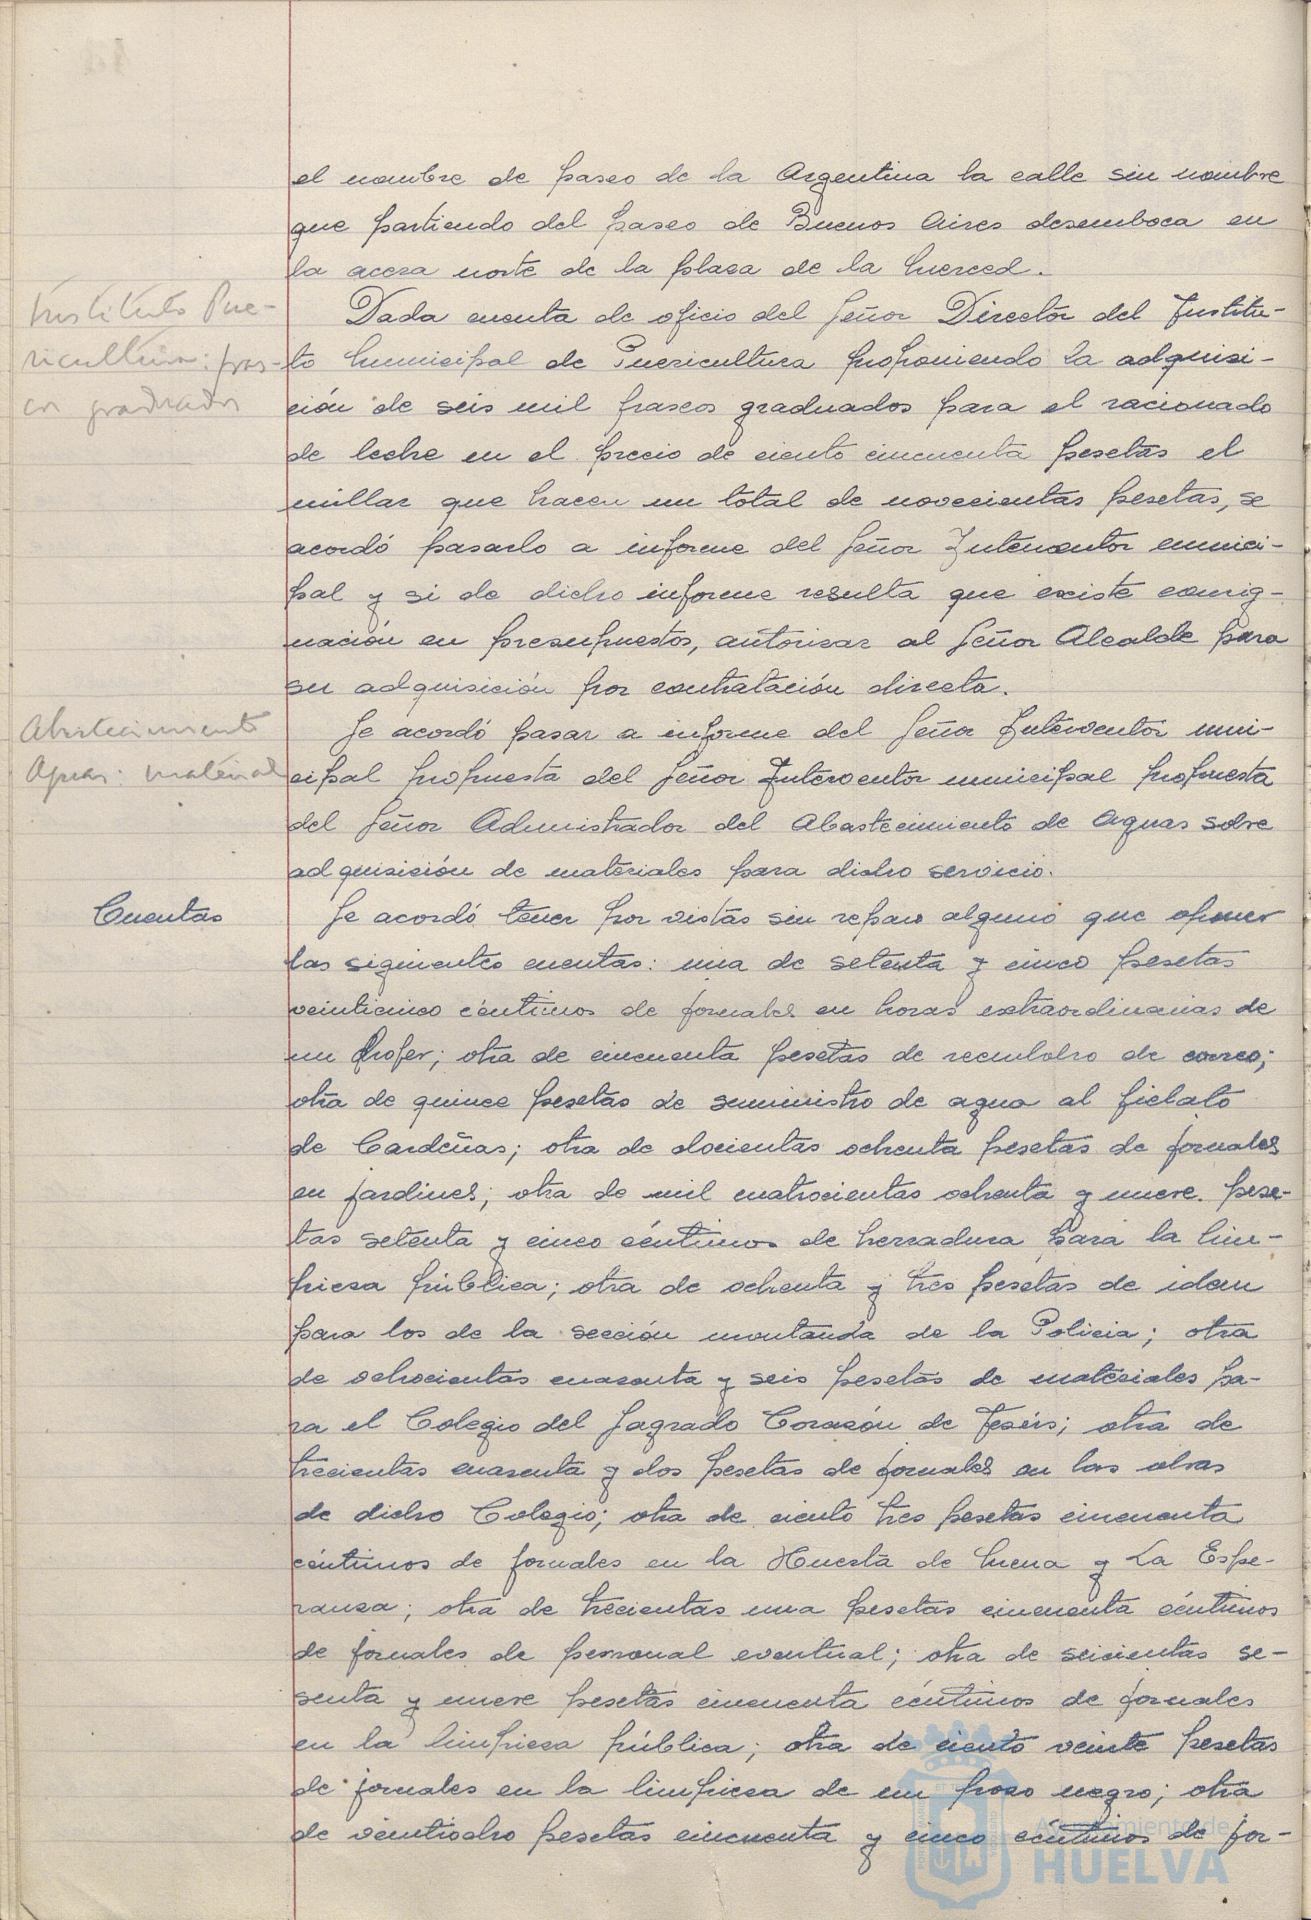 el nombre de paseo de la Argentina la calle sin nombre
que partiendo del paseo de Buenos Aires desemboca en
la acera norte de la plaza de la Merced.
Instituto Pue-
ricultura: fras-
cos graduados
Dada cuenta de oficio del Señor Director del Institu-
to Municipal de Puericultura proponiendo la adquisi-
ción de seis mil frascos graduados para el racionado
de leche en el precio de ciento cincuenta pesetas el
millar que hacen un total de novecientas pesetas, se
acordó pasarlo a informe del Señor Interventor munici-
pal y si de dicho informe resulta que existe consig-
nación en presupuestos, autorizar al Señor Alcalde para
su adquisición por contratación directa.
Abastecimiento
Aguas: material
Se acordó pasar a informe del Señor Interventor muni-
cipal propuesta del Señor Interventor municipal propuesta
del Señor Administrador del Abastecimiento de Aguas sobre
adquisición de materiales para dicho servicio.
Cuentas
Se acordó tener por vistas sin reparo alguno que oponer
las siguientes cuentas: una de setenta y cinco pesetas
veinticinco céntimos de jornales en horas extraordinarias de
un chofer; otra de cincuenta pesetas de reembolso de correo;
otra de quince pesetas de suministro de agua al fielato
de Cardeñas; otra de docientas ochenta pesetas de jornales
en jardines; otra de mil cuatrocientas ochenta y nueve pese-
tas setenta y cinco céntimos de herradura para la lim-
pieza pública; otra de ochenta y tres pesetas de idem
para los de la sección montanda de la Policia; otra
de ochocientas cuarenta y seis pesetas de materiales pa-
ra el Colegio del Sagrado Corazón de Jesús; otra de
trecientas cuarenta y dos pesetas de jornales en las obras
de dicho Colegio; otra de ciento tres pesetas cincuenta
céntimos de jornales en la Huerta de Mena y La Espe-
ranza; otra de trecientas una pesetas cincuenta céntimos
de jornales de personal eventual; otra de seicientas se-
senta y nueve pesetas cincuenta céntimos de jornales
en la limpieza pública; otra de ciento veinte pesetas
de jornales en la limpieza de un pozo negro; otra
de veintiocho pesetas cincuenta y cinco céntimos de jor-
Ayuntamiento de
HUELVA